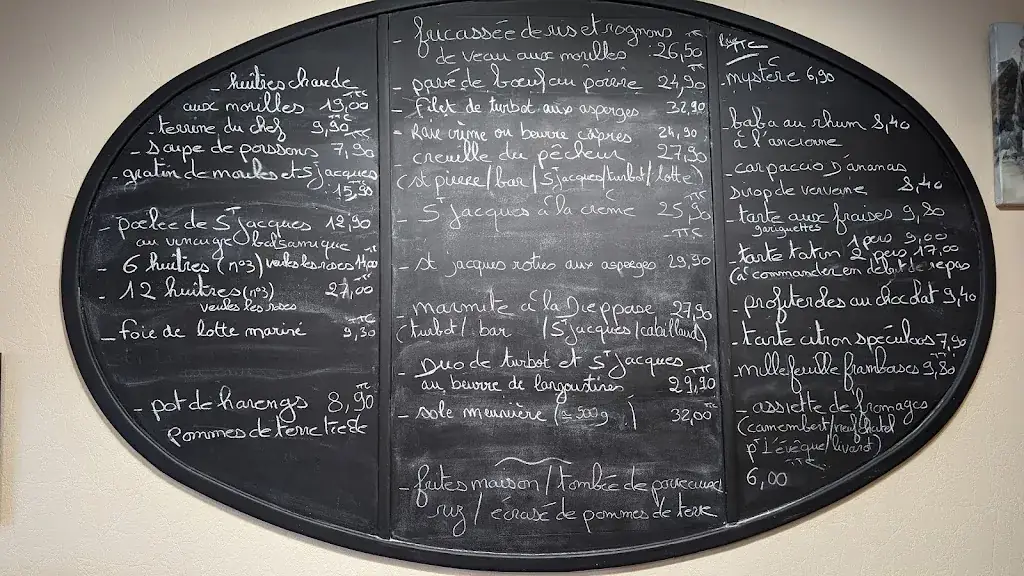 huîtres chaude
aux morilles 19,00
- terrine du chef 9,90
- soupe de poissons 7,90
- gratin de moules et St jacques
15,90
- poêlée de St jacques 12,90
au vinaigre balsamique
- 6 huîtres (n°3) veules les roses 14,00
- 12 huîtres (n°3) 27,00
veules les roses
- foie de lotte mariné 9,30
- pot de harengs 8,90
pommes de terre tiède
- fricassée de ris et rognons
de veau aux morilles 26,50
- pavé de bœuf au poivre 24,90
- filet de turbot aux asperges 32,90
- Raie crème ou beurre câpres 24,90
- creuille du pêcheur 27,90
(st pierre/bar/St jacques/turbot/lotte)
- St jacques à la crème 25,90
TTC
- st jacques roties aux asperges 29,90
- marmite à la Dieppoise 27,90
(turbot/ bar /St jacques/cabillaud)
- Duo de turbot et St jacques
au beurre de langoustines 29,90
- sole meunière (≃ 500g ) 32,00
- frites maison/tombée de poireaux
riz/écrasé de pommes de terre
TTC
mystère 6,90
- baba au rhum 8,40
à l'ancienne
- carpaccio D'ananas
sirop de verveine 8,40
- tarte aux fraises 9,80
gariguettes
- tarte tatin 1 pers 9,00
2 pers 17,00
(à commander en début de repas
- profiteroles au chocolat 9,40
- tarte citron spéculoos 7,90
- millefeuille framboises 9,80
- assiette de fromages
(camembert/neufchatel
pt L'évêque/livarot)
6,00